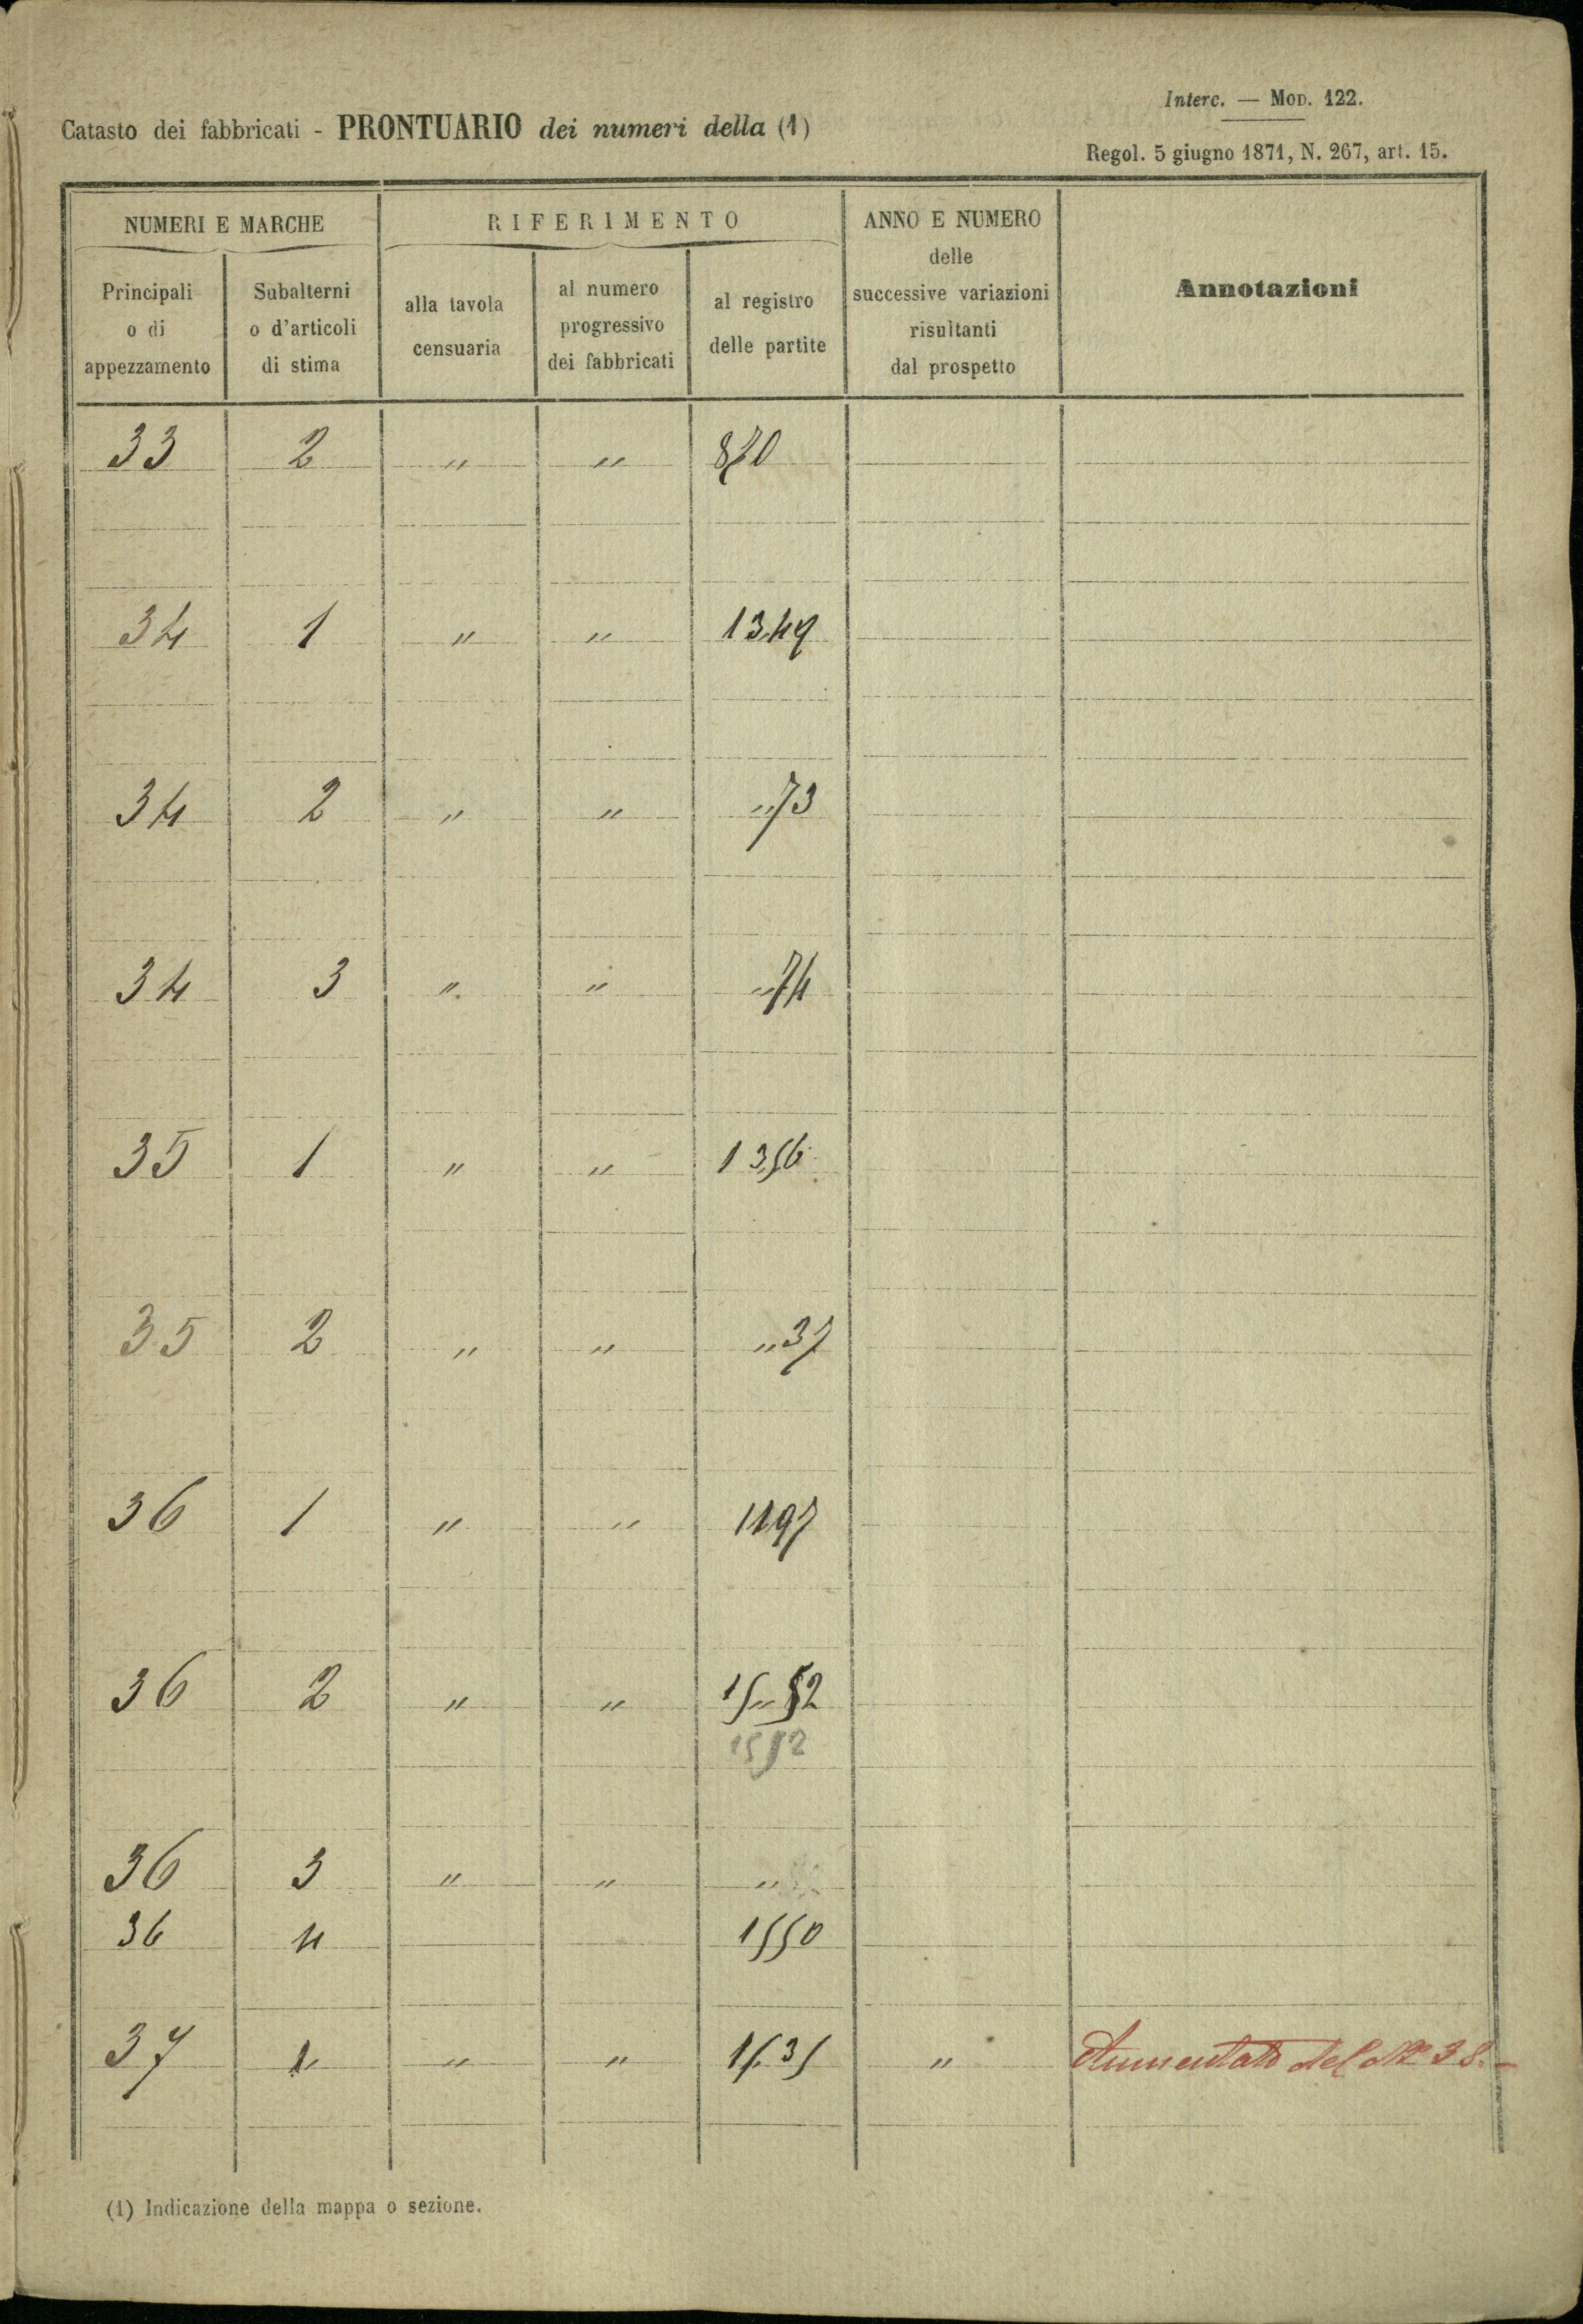 Interc. — Mod. 122.
Catasto dei fabbricati - PRONTUARIO dei numeri della (1)
Regol. 5 giugno 1871, N. 267, art. 15.
NUMERI E MARCHE
RIFERIMENTO
ANNO E NUMERO
delle
successive variazioni
risultanti
dal prospetto
Annotazioni
Principali
o di
appezzamento
Subalterni
o d'articoli
di stima
alla tavola
censuaria
al numero
progressivo
dei fabbricati
al registro
delle partite
33 2 " " 870
34 1 " " 1349
34 2 " " "73
34 3 " " "74
35 1 " " 1356
35 2 " " "37
36 1 " " 1197
36 2 " " 15"52
1552
36 3 " " "
36 4 1550
37 1 " " 1535 " Aumentato del N° 38.-
(1) Indicazione della mappa o sezione.